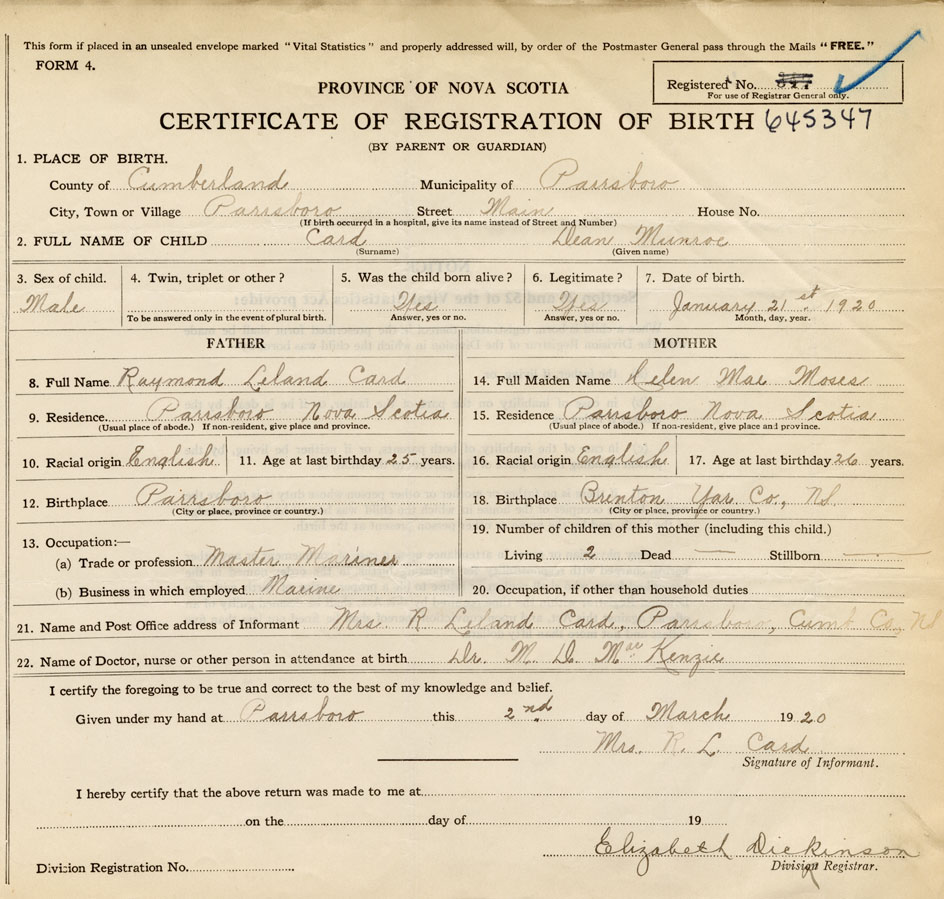 This form if placed in an unsealed envelope marked "Vital Statistics" and properly addressed will, by order of the Postmaster General pass through the Mails "FREE."
FORM 4.
Registered No.
For use of Registrar General only.
PROVINCE OF NOVA SCOTIA
CERTIFICATE OF REGISTRATION OF BIRTH 645347
(BY PARENT OR GUARDIAN)
1. PLACE OF BIRTH.
County of Cumberland Municipality of Parrsboro
City, Town or Village Parrsboro Street Main House No.
(If birth occurred in a hospital, give its name instead of Street and Number)
2. FULL NAME OF CHILD Card Dean Munroe
(Surname) (Given name)
3. Sex of child. 4. Twin, triplet or other? 5. Was the child born alive? 6. Legitimate? 7. Date of birth.
Male Yes Yes January 21st 1920
To be answered only in the event of plural birth. Answer, yes or no. Answer, yes or no. Month, day, year.
FATHER MOTHER
8. Full Name Raymond Leland Card 14. Full Maiden Name Helen Mae Moses
9. Residence Parrsboro Nova Scotia 15. Residence Parrsboro Nova Scotia
(Usual place of abode.) If non-resident, give place and province. (Usual place of abode.) If non-resident, give place and province.
10. Racial origin English 11. Age at last birthday 25 years. 16. Racial origin English 17. Age at last birthday 26 years.
12. Birthplace Parrsboro 18. Birthplace Brenton Yar Co., NS
(City or place, province or country.) (City or place, province or country.)
19. Number of children of this mother (including this child.)
13. Occupation:—
(a) Trade or profession Master Mariner Living 2 Dead — Stillborn —
(b) Business in which employed Marine 20. Occupation, if other than household duties
21. Name and Post Office address of Informant Mrs R Leland Card, Parrsboro, Cumb Co, NS
22. Name of Doctor, nurse or other person in attendance at birth Dr. M D MacKenzie
I certify the foregoing to be true and correct to the best of my knowledge and belief.
Given under my hand at Parrsboro this 2nd day of March 1920
Mrs. R. L. Card
Signature of Informant.
I hereby certify that the above return was made to me at
on the day of 19
Elizabeth Dickinson
Division Registrar.
Division Registration No.